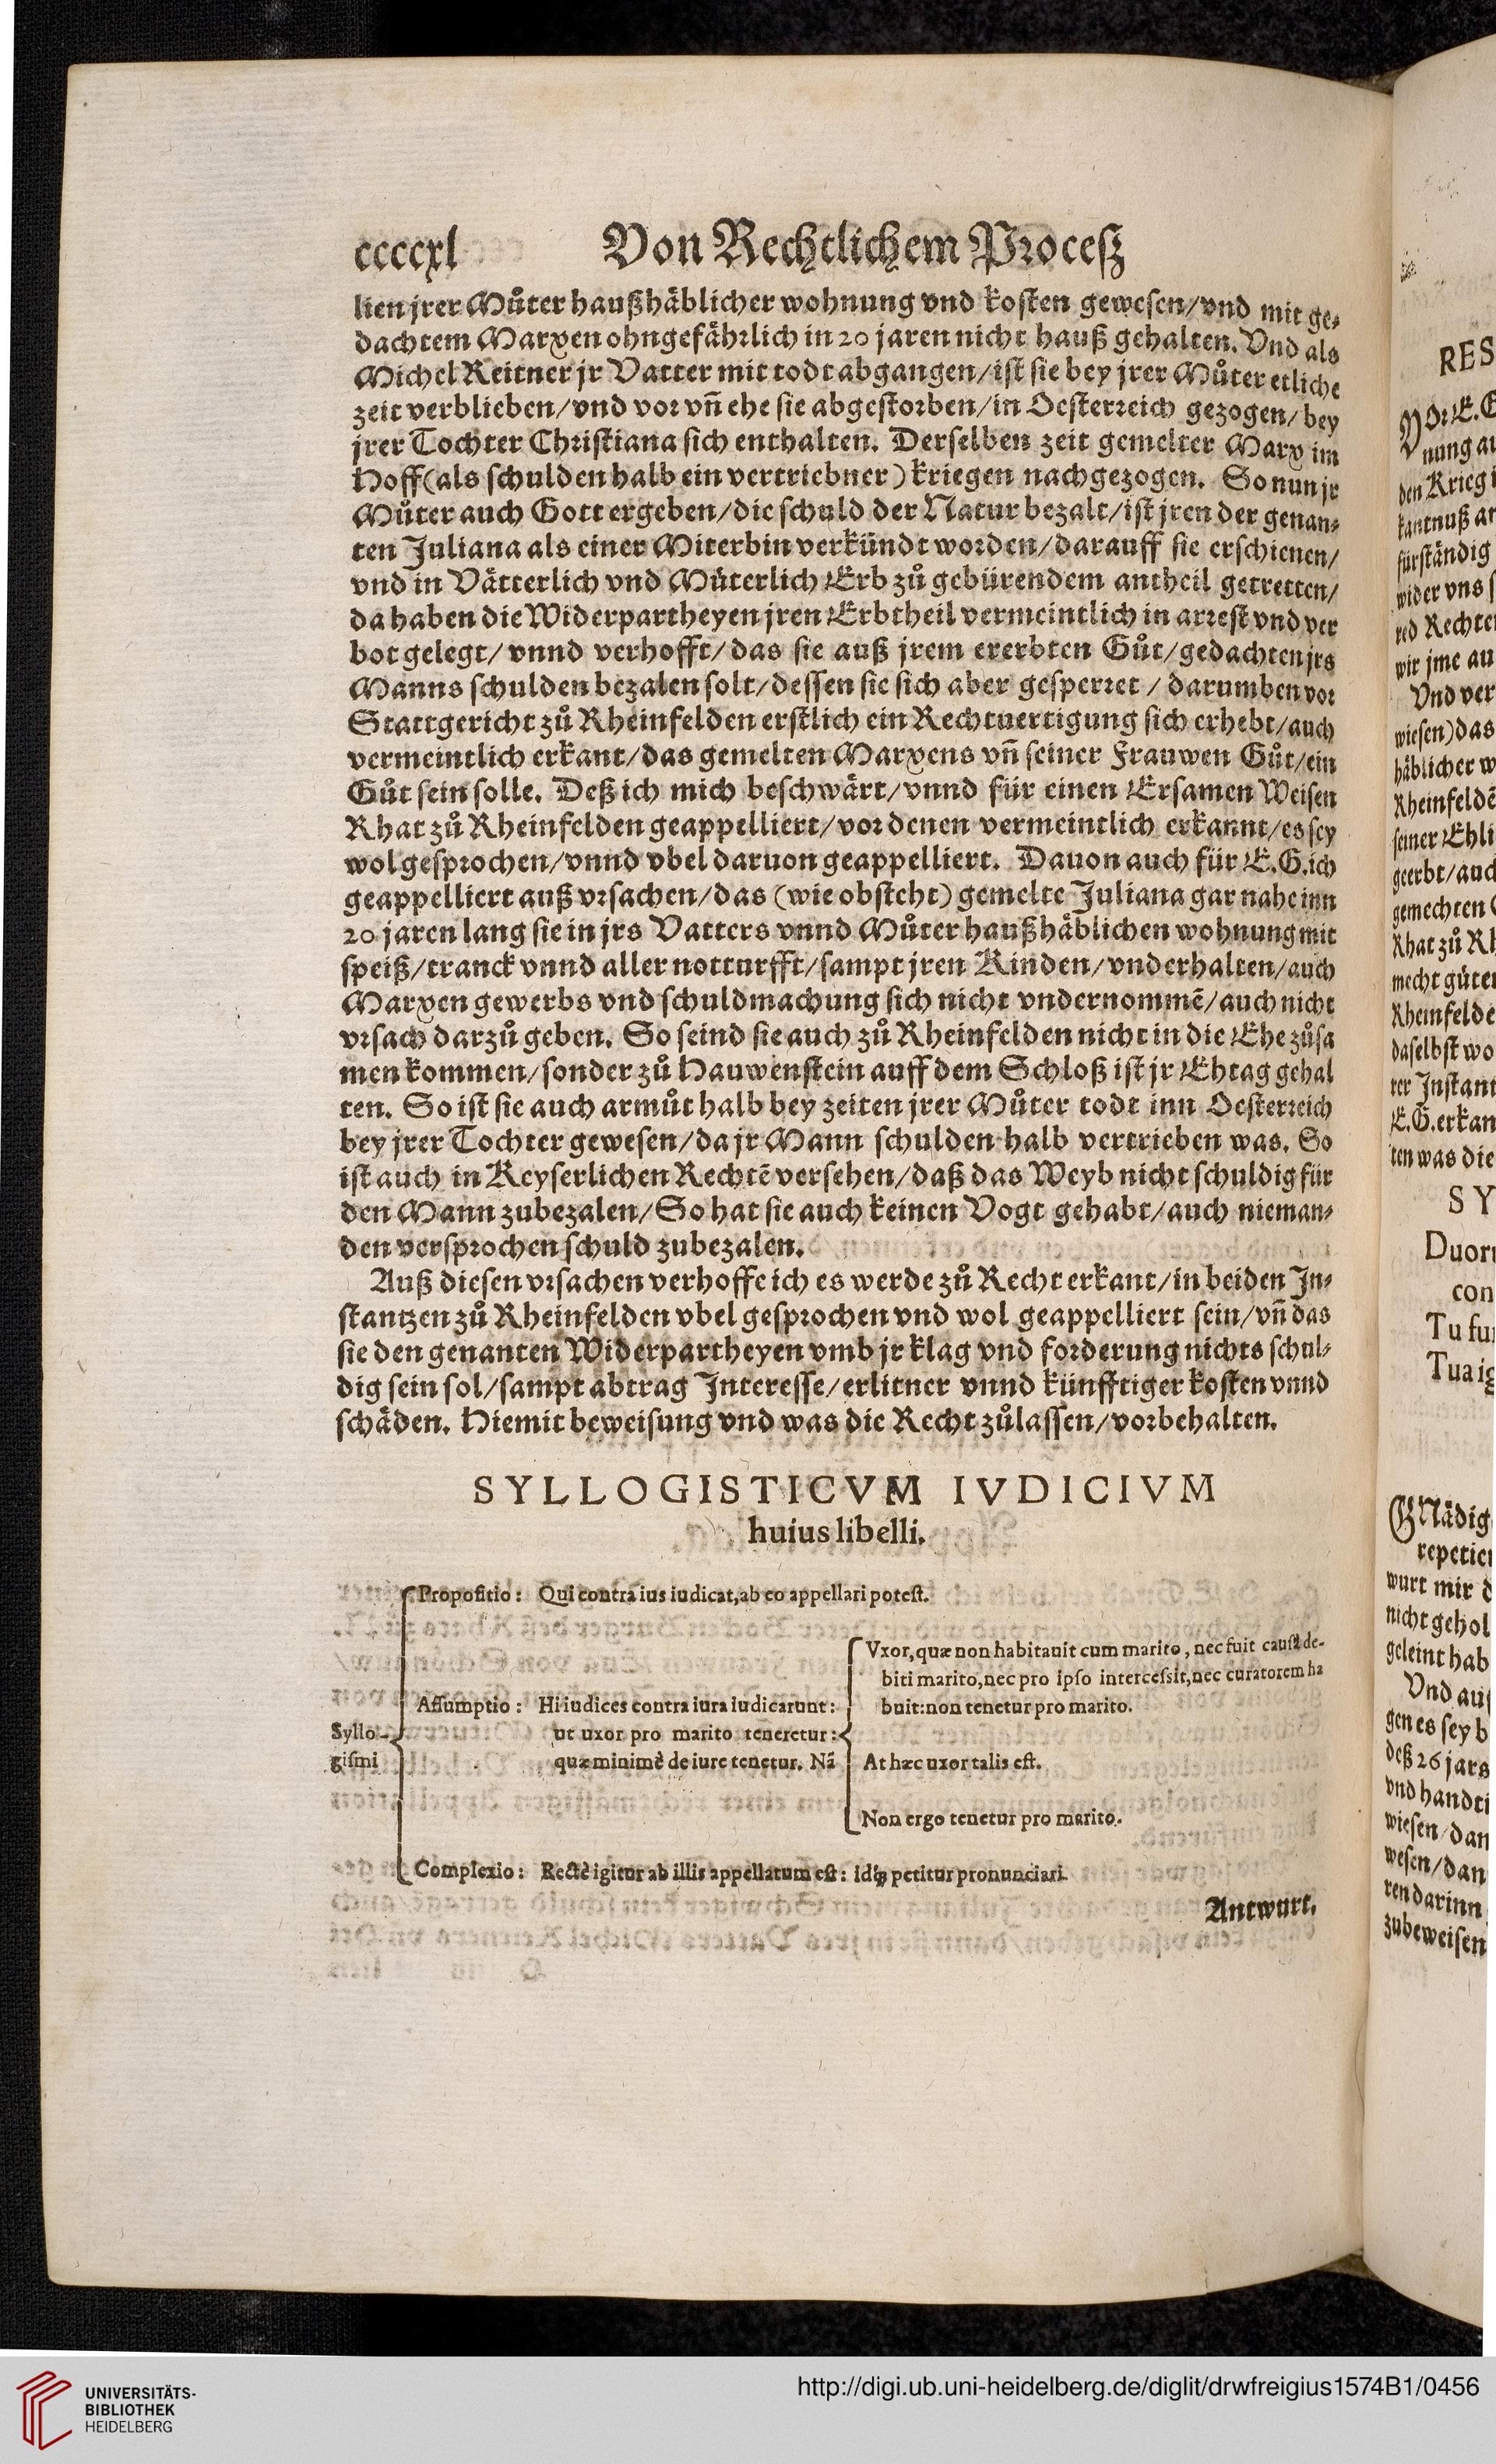 ccccxl Von Rechtlichem Proceſz
lien jrer Můter haußhäblicher wohnung vnd koſten geweſen/ vnd mit ge⸗
dachtem Marxen ohngefährlich in 20 jaren nicht hauß gehalten. Vnd als
Michel Reitner jr Vatter mit todt abgangen/ iſt ſie bey jrer Můter etliche
zeit verblieben/ vnd vor vñ ehe ſie abgeſtorben/ in Oeſterreich gezogen/ bey
jrer Tochter Chriſtiana ſich enthalten. Derſelben zeit gemelter Marx im
Hoff (als ſchulden halb ein vertriebner) kriegen nachgezogen. So nun jr
Můter auch Gott ergeben/ die ſchuld der Natur bezalt/ iſt jren der genan⸗
ten Juliana als einer Miterbin verkündt worden/ darauff ſie erſchienen/
vnd in Vätterlich vnd Můterlich Erb zů gebürendem antheil getretten/
da haben die Widerpartheyen jren Erbtheil vermeintlich in arreſt vnd ver
bot gelegt/ vnnd verhofft/ das ſie auß jrem ererbten Gůt/ gedachten jrs
Manns ſchulden bezalen ſolt/ deſſen ſie ſich aber geſperret / darumben vor
Stattgericht zů Rheinfelden erſtlich ein Rechtuertigung ſich erhebt/ auch
vermeintlich erkant/ das gemelten Marxens vñ ſeiner Frauwen Gůt/ ein
Gůt ſein ſolle. Deß ich mich beſchwärt/ vnnd für einen Erſamen Weiſen
Rhat zů Rheinfelden geappelliert/ vor denen vermeintlich erkannt/ es ſey
wol geſprochen/ vnnd vbel daruon geappelliert. Dauon auch für E.G. ich
geappelliert auß vrſachen/ das (wie obſteht) gemelte Juliana gar nahe inn
20 jaren lang ſie in jrs Vatters vnnd Můter haußhäblichen wohnung mit
ſpeiß/ tranck vnnd aller notturfft/ ſampt jren Kinden/ vnderhalten/ auch
Marxen gewerbs vnd ſchuldmachung ſich nicht vndernommẽ/ auch nicht
vrſach darzů geben. So ſeind ſie auch zů Rheinfelden nicht in die Ehe zůſa
men kommen/ ſonder zů Hauwenſtein auff dem Schloß iſt jr Ehtag gehal
ten. So iſt ſie auch armůt halb bey zeiten jrer Můter todt inn Oeſterreich
bey jrer Tochter geweſen/ da jr Mann ſchulden halb vertrieben was. So
iſt auch in Keyſerlichen Rechtẽ verſehen/ daß das Weyb nicht ſchuldig für
den Mann zubezalen/ So hat ſie auch keinen Vogt gehabt/ auch nieman⸗
den verſprochen ſchuld zubezalen.
Auß dieſen vrſachen verhoffe ich es werde zů Recht erkant/ in beiden In⸗
ſtantzen zů Rheinfelden vbel geſprochen vnd wol geappelliert ſein/ vñ das
ſie den genanten Widerpartheyen vmb jr klag vnd forderung nichts ſchul⸗
dig ſein ſol/ ſampt abtrag Intereſſe/ erlitner vnnd künfftiger koſten vnnd
ſchäden. Hiemit beweiſung vnd was die Recht zůlaſſen/ vorbehalten.
SYLLOGISTICVM IVDICIVM
huius libelli.
Syllo-
giſmi
Propoſitio: Qui contra ius iudicat, ab eo appellari poteſt.
Aſſumptio: Hi iudices contra iura iudicarunt:
ut uxor pro marito teneretur:
quæ minimè de iure tenetur. Nã
Vxor, quæ non habitauit cum marito, nec fuit cauſa de-
biti marito, nec pro ipſo interceſsit, nec curatorem ha
buit: non tenetur pro marito.
At hæc uxor talis eſt.
Non ergo tenetur pro marito.
Complexio: Rectè igitur ab illis appellatum eſt: idq́; petitur pronunciari.
Antwurt.
RES
Vor E. G
nung au
den Krieg i
kantnuß an
fürſtändig
wider vns ſ
red Rechte
wir jme au
Vnd ver
wieſen) das
häblicher w
Rheinfeldẽ
ſeiner Ehli
geerbt/ auch
gemechten
Rhat zů Rh
mecht güter
Rheinfelde
daſelbſt wo
ter Inſtant
E.G. erkan
ten was die
SY
Duor
con
Tu fu
Tua ig
GNädig
repetier
wurt mir d
nicht gehol
geleint hab
Vnd auſ
gen es ſey b
deß 26 jars
vnd handti
wieſen/ dan
weſen/ dan
ren darinn
zubeweiſen
UNIVERSITÄTS-
BIBLIOTHEK
HEIDELBERG
http://digi.ub.uni-heidelberg.de/diglit/drwfreigius1574B1/0456